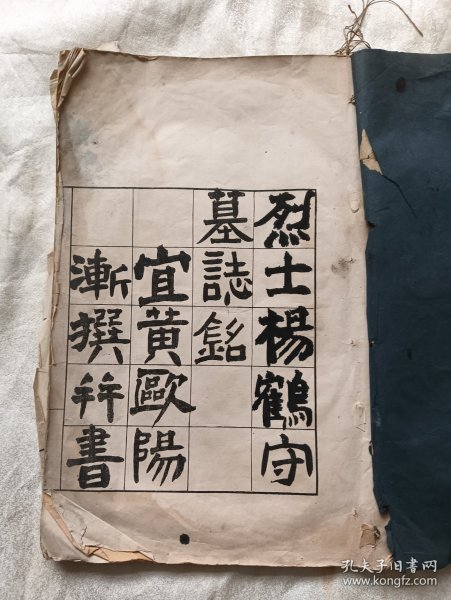 烈士楊鶴守
墓誌銘
宜黄歐陽
漸撰并書
孔夫子旧书网
www.kongfz.com